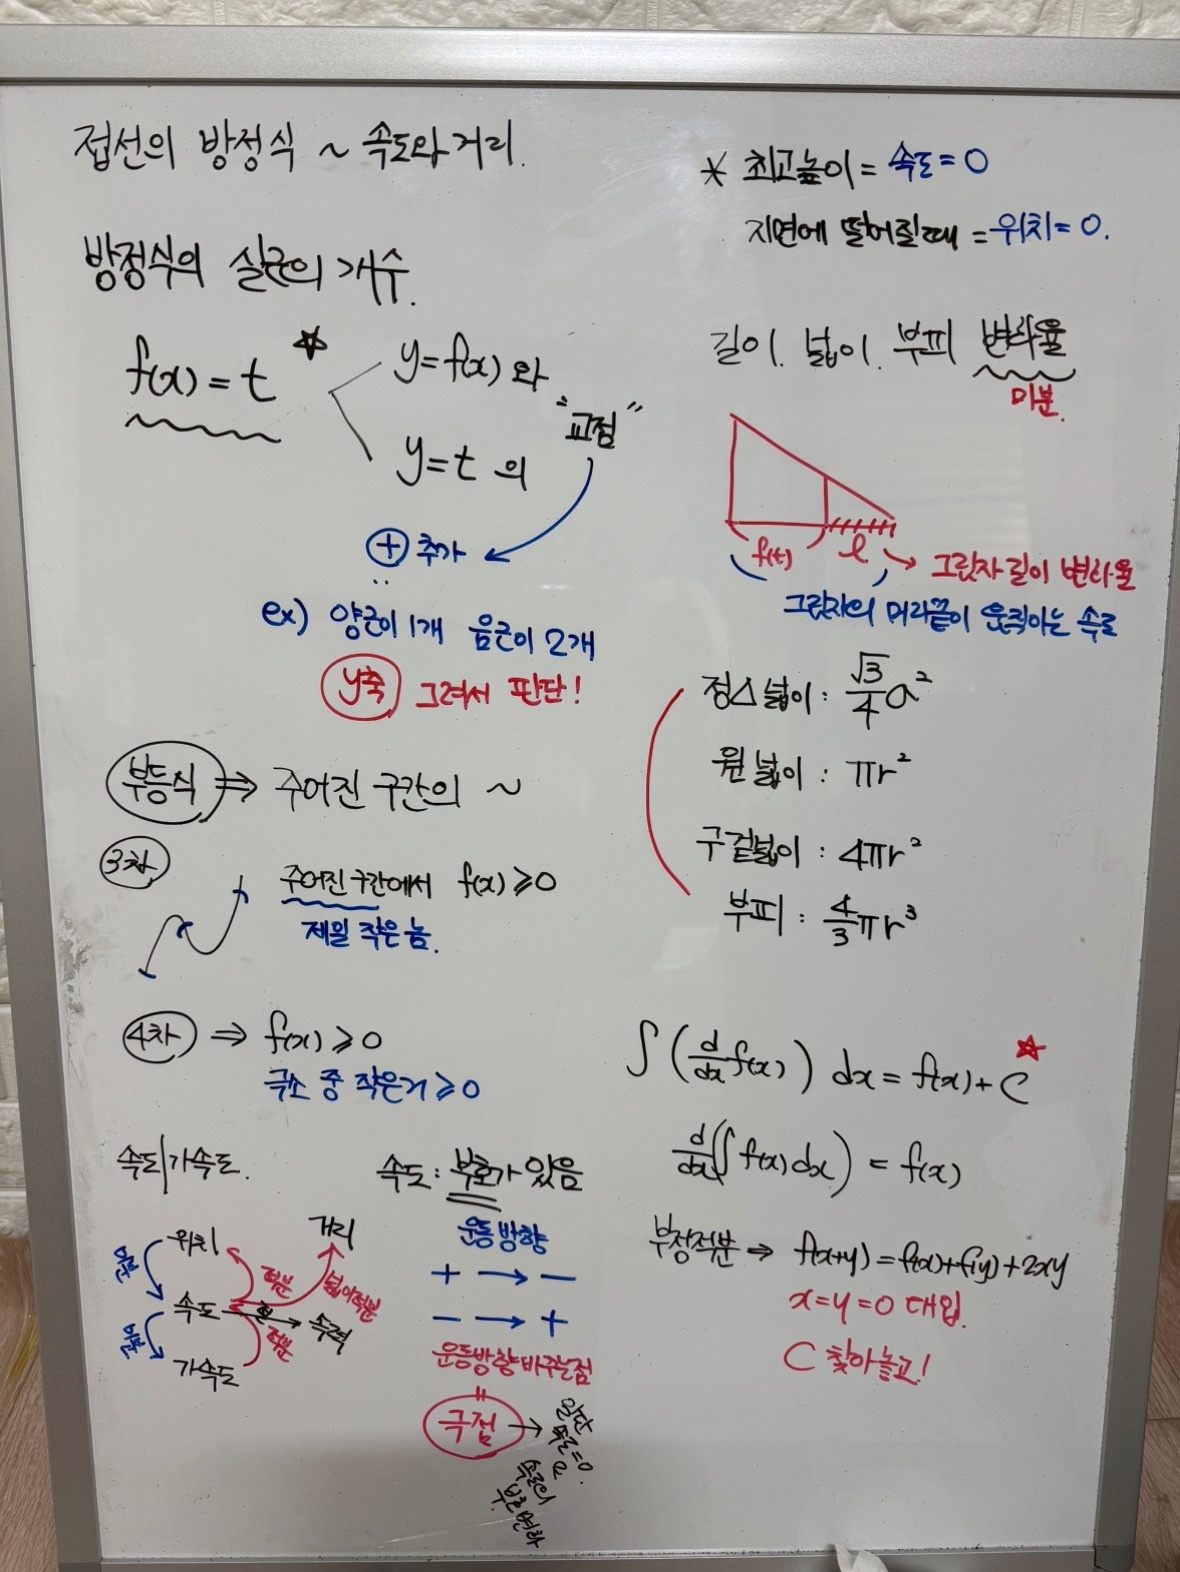 접선의 방정식 ~ 속도와 거리.
방정식의 실근의 개수.
f(x) = t ☆
y=f(x) 와
y=t 의
"교점"
⊕ 추가
ex) 양근이 1개 음근이 2개
y축 그려서 판단!
부등식 ⇒ 주어진 구간의 ~
3차
주어진 구간에서 f(x) ≥ 0
제일 작은 놈.
4차 ⇒ f(x) ≥ 0
극소 중 작은거 ≥ 0
속도/가속도.
위치
거리
미분
적분
넓이적분
속도
절
속력
미분
적분
가속도
속도 : 부호가 있음
운동방향
+ → −
− → +
운동방향 바꾸는점
=
극점 →
일단
속도=0.
&
속도의
부호변화
* 최고높이 = 속도 = 0
지면에 떨어질때 = 위치 = 0.
길이. 넓이. 부피 변화율
미분.
f(t) l → 그림자 길이 변화율
그림자의 머리끝이 움직이는 속도
정△넓이 : √3/4 a²
원 넓이 : πr²
구 겉넓이 : 4πr²
부피 : 4/3 πr³
∫ (d/dx f(x)) dx = f(x) + C ☆
d/dx (∫ f(x) dx) = f(x)
부정적분 ⇒ f(x+y) = f(x)+f(y)+2xy
x=y=0 대입.
C 찾아놓고!